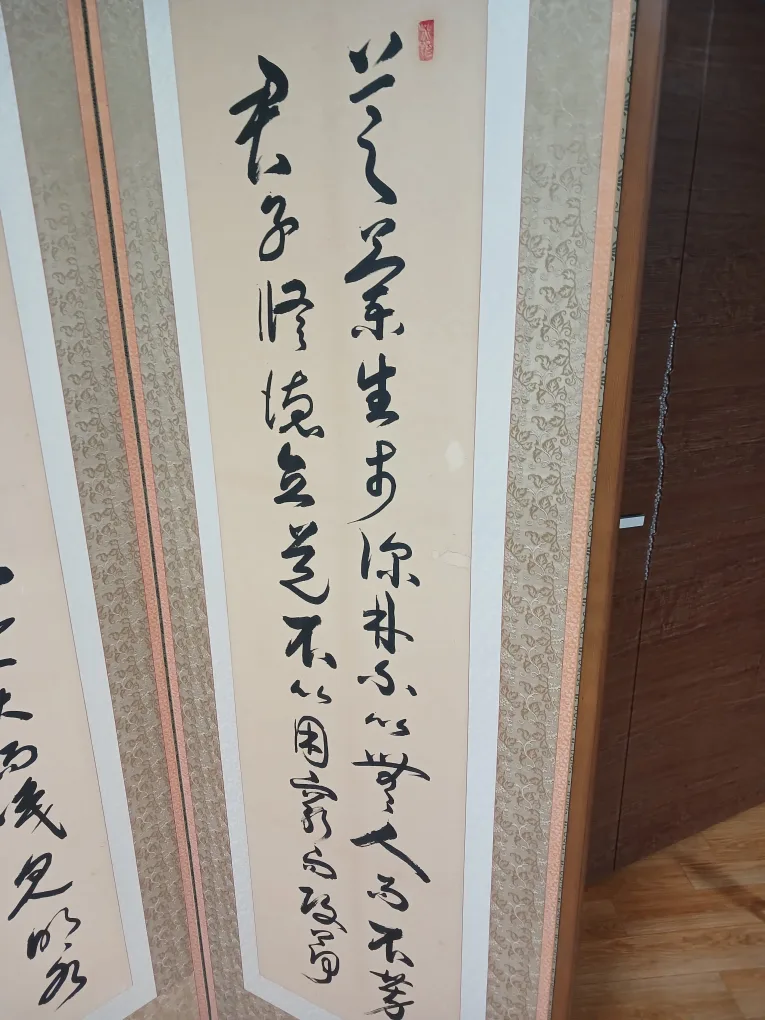 芝蘭生於深林不以無人而不芳
君子修德立道不以困窮而改節
大而後見明